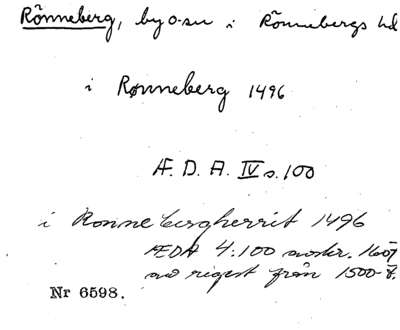 Rönneberg, by o. sn i Rönnebergs hd
i Rønneberg 1496
Æ. D. A. IV s. 100
i Ronnebergherrit 1496
ÆDA 4:100 avskr. 1607
av regest från 1500-t.
Nr 6598.